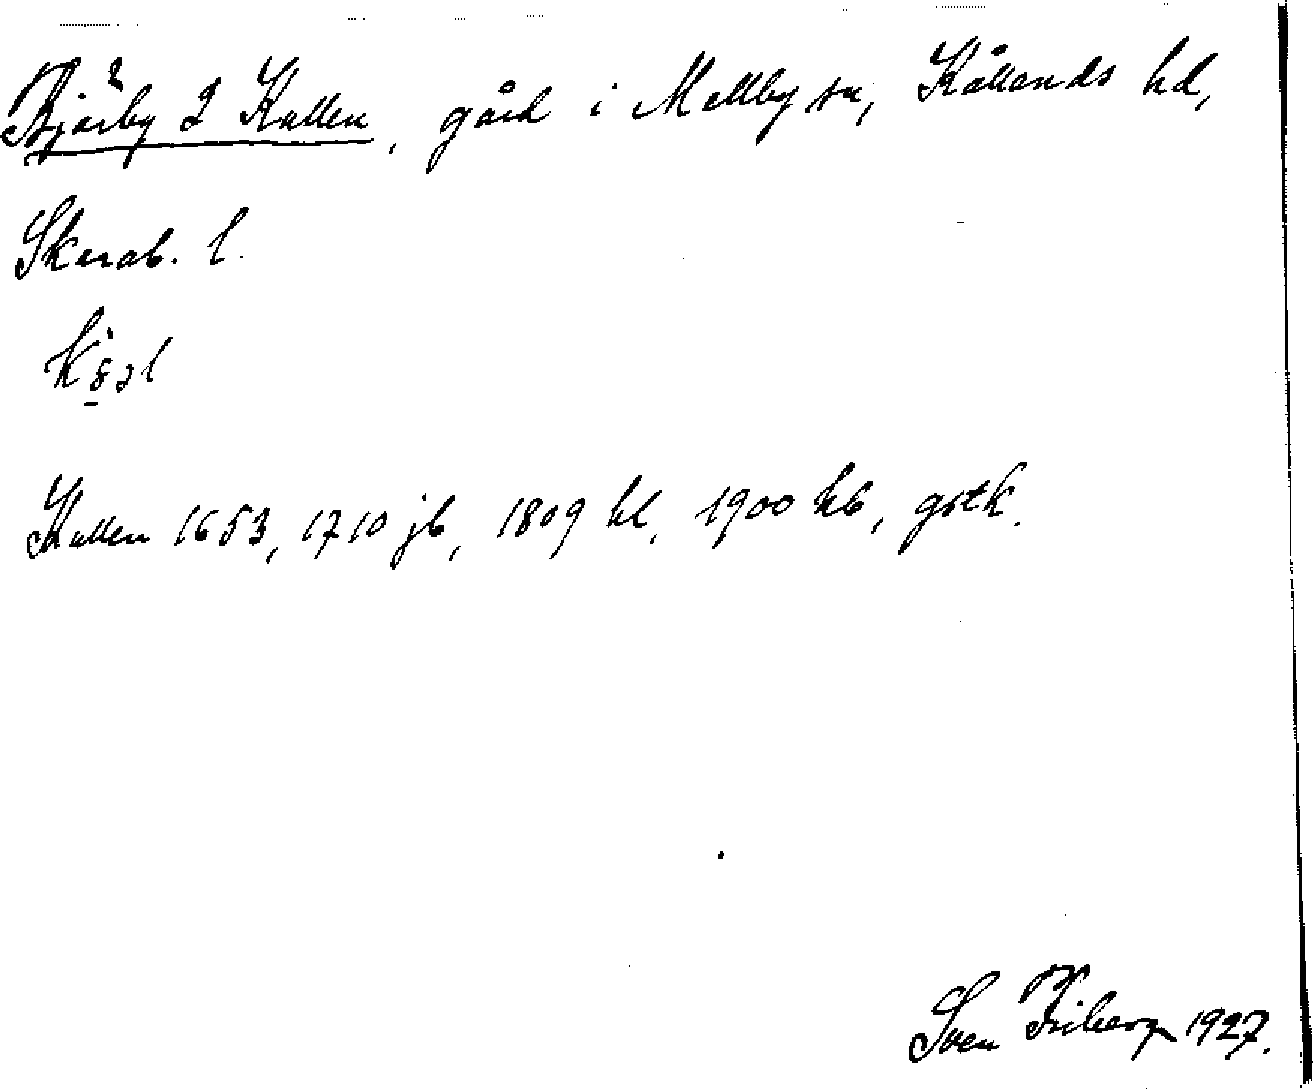 Björby 2 Kullen, gård i Mellby sn, Kållands hd,
Skarab. l.
Kullen 1653, 1710 jb, 1809 hl, 1900 kb, gstk.
Sven Friberg 1927.